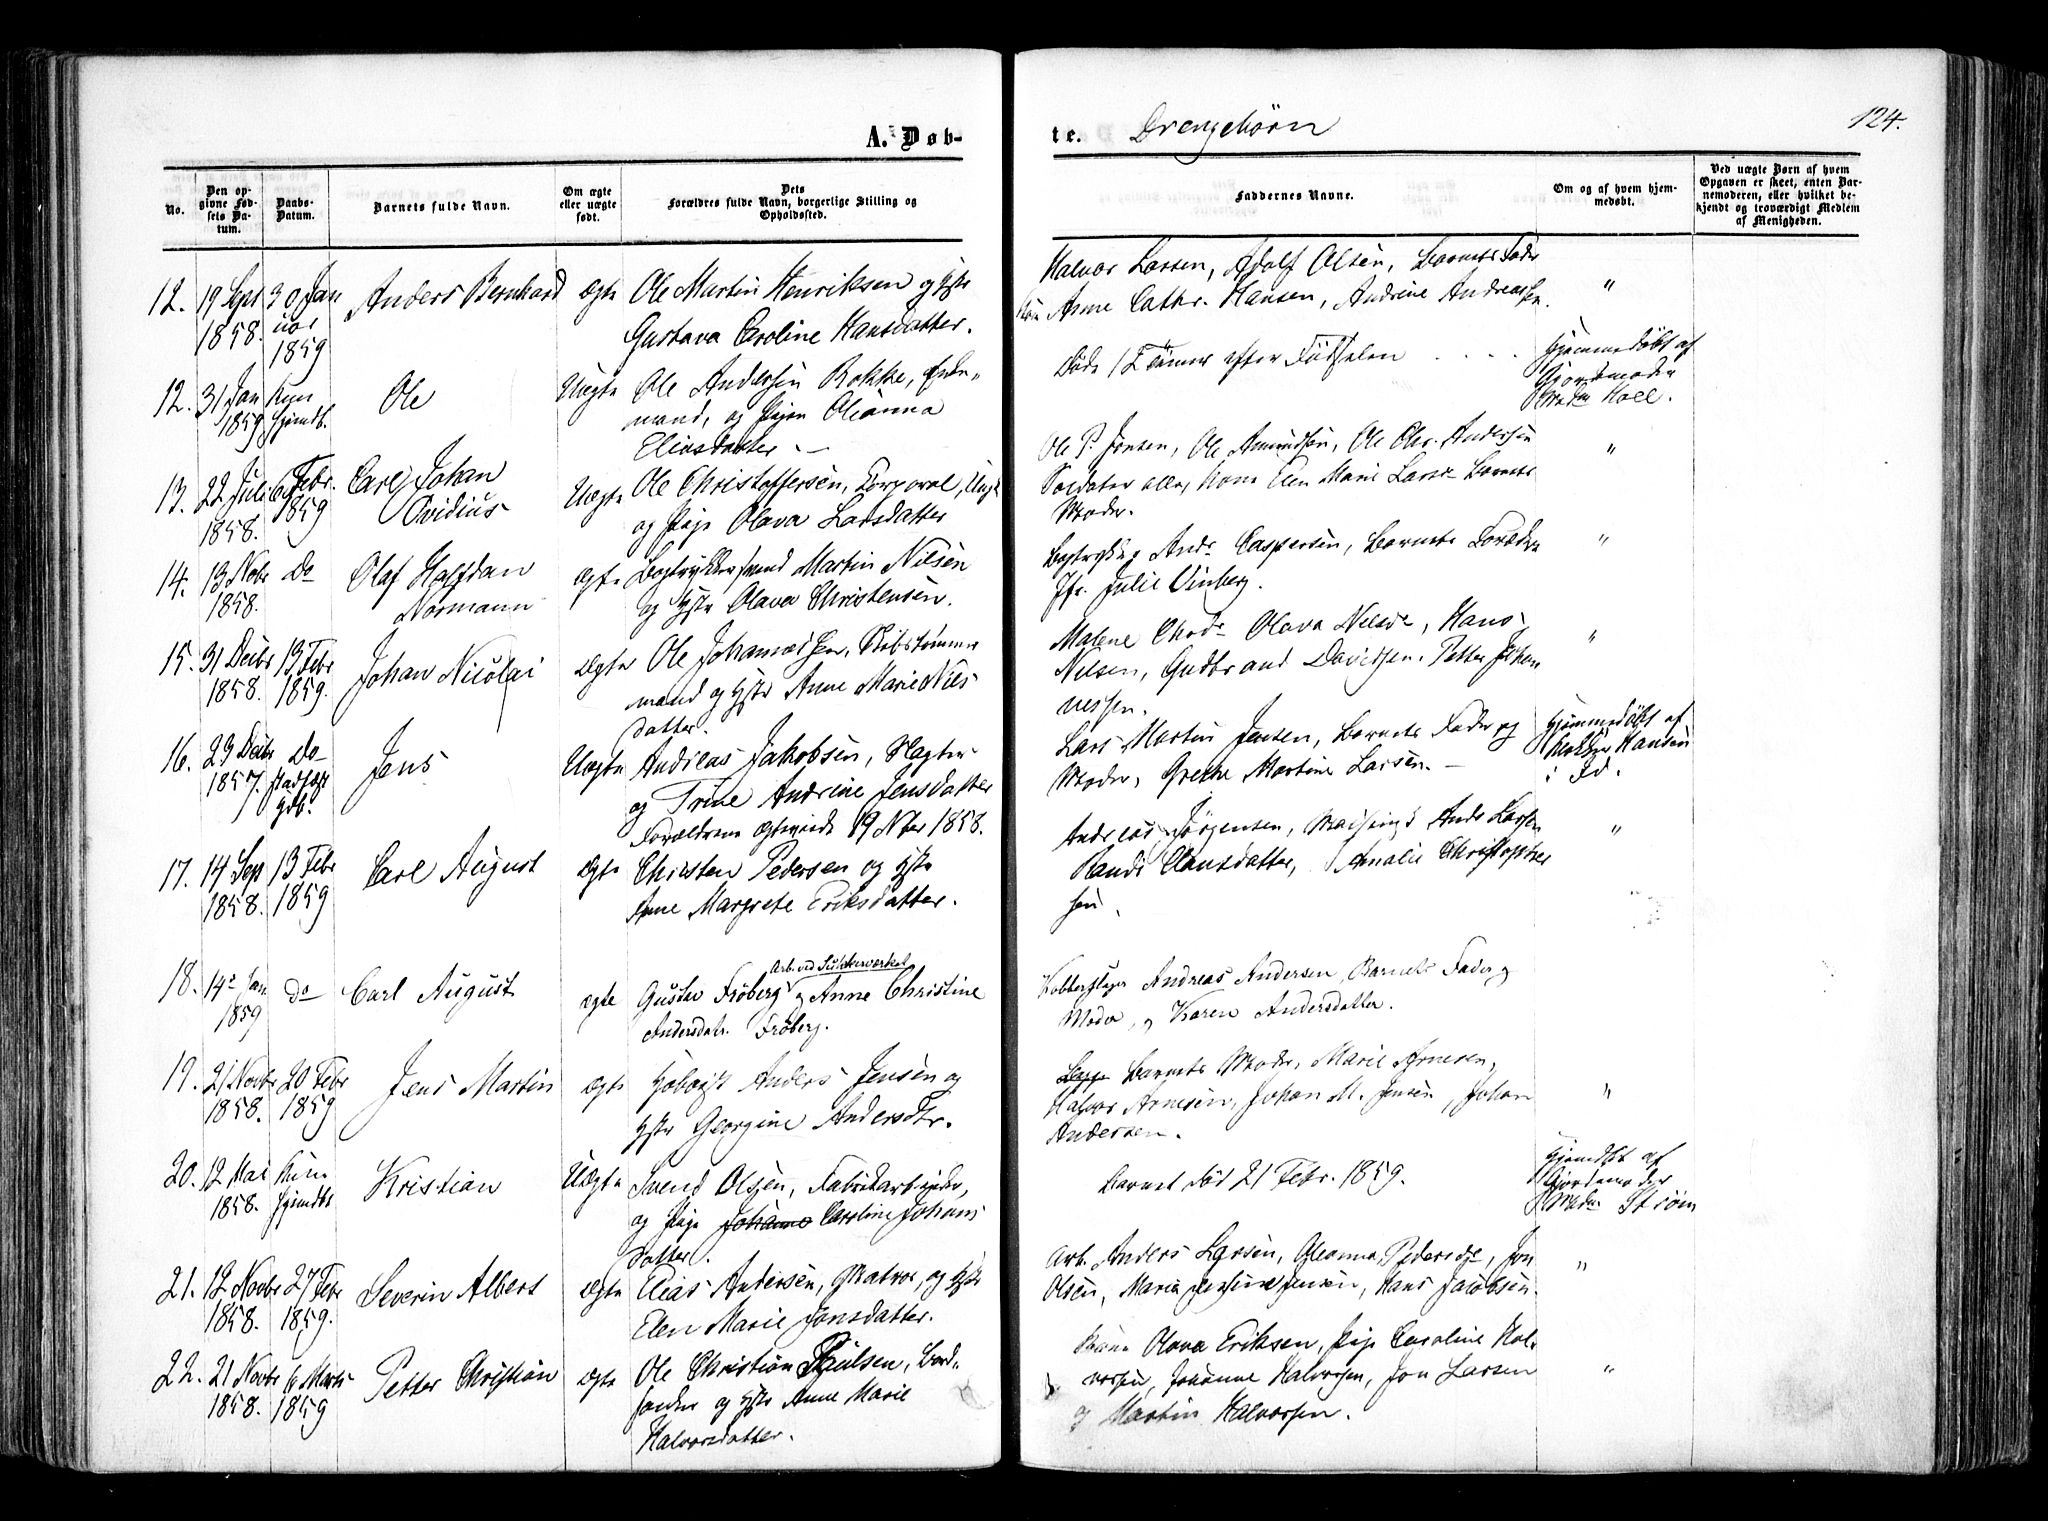 A. Døb-
te. Drengebørn
124.
No.
Den op-
givne Fød-
sels Da-
tum.
Daabs-
Datum.
Barnets fulde Navn.
Om ægte
eller uægte
født.
Dets
Forældres fulde Navn, borgerlige Stilling og
Opholdssted.
Faddernes Navne.
Om og af hvem hjem-
medøbt.
Ved uægte Børn af hvem
Opgaven er skeet, enten Bar-
nemoderen, eller hvilket be-
kjendt og troværdigt Medlem
af Menigheden.
12. 19 Sept 1858. 30 Jan uar 1859 Anders Bernhard ægte Ole Martin Henriksen og Hstr
Gustava Caroline Hansdatter.
Halvor Larsen, Adolf Olsen, Barnets Fader
Anne Cathr. Hansen, Andrine Andreassen. "
12. 31 Jan 1859 Kun hjemdb. Ole Uægte Ole Andersen Rokke, Enke-
mand, og Pigen Oleanna
Eliasdatter -
Døde 12 Timer efter Fødselen . . . .
Hjemmedøbt af
Gjordemoder
Mad. Holl.
13. 22 Juli 1858. 6 Febr. 1859 Carl Johan
Ovidius Uægte Ole Christoffersen, Corporal, Ungk
og Pige Olava Larsdatter
Ole P. Jensen, Ole Amundsen, Ole Chr. Andersen
Soldater alle, Kone Elen Marie Larsen Barnets
Moder. "
14. 13 Novbr 1858. Do Olaf Halfdan
Normann ægte Bogtrykkersvend Martin Nilsen
og Hstr Olava Christensen.
Andr. Caspersen, Barnets Forældre
Jfr. Julie Vinberg. "
15. 31 Decbr 1858. 13 Febr 1859. Johan Nicolai Ægte Ole Johannessen, Skibstømmer
mand og Hstr Anne Marie Nils
datter.
Malene Olava Nilsen, Hans
Nilsen, Gudbrand Davidsen, Petter Johan
nessen. "
16. 23 Decbr 1857. Do stadfæst hjdb. Jens Uægte Andreas Jakobsen, Slagter
og Trine Andrine Jensdatter
Forældrene ægteviede 19 Nbr 1858.
Lars Martin Jensen, Barnets Fader og
Moder, Grethe Martine Larsen. -
Hjemmedøbt af
Klokker Hansen
i Id.
17. 14 Sep 1858. 13 Febr 1859 Carl August Ægte Christen Pedersen og Hstr
Anne Margrete Eriksdatter.
Andreas Jørgensen, Anders Larsen
Randi Clausdatter, Amalie Christopher
sen. "
18. 14 Jan. 1859 do Carl August ægte Gustav Frøberg Arb. ved Sukkerværket og Anne Christine
Andersdatr. Frøberg.
Kobberslager Andreas Andersen, Barnets Fader og
Moder, og Karen Andersdatter.
19. 21 Novbr 1858. 20 Febr 1859 Jens Martin ægte Anders Jensen og
Hstr Georgine Andersdtr.
Barnets Moder, Marie Arnesen,
Halvor Arnesen, Johan M. Jensen, Johan
Andersen. "
20. 12 Mai 1858. Kun hjemdbt Kristian Uægte Svend Olsen, Fabrikarbeider,
og Pige Johanne Caroline Johans
datter.
Barnet død 21 Febr. 1859.
Hjemdbt af
Gjordemoder
Madm Strøm
21. 12 Novbr 1858. 27 Febr 1859. Severin Albert ægte Elias Andersen, Matros, og Hstr
Elen Marie Jonsdatter.
Arb. Anders Larsen, Oleanna Pedersdtr, Jon
Olsen, Maria Josefine Jensen, Hans Jacobsen. "
22. 21 Novbr 1858. 6 Marts 1859 Petter Christian ægte Ole Christian Paulsen, Bord-
og Hstr Anne Marie
Halvorsdatter.
Kone Olava Eriksen, Pige Caroline Hal-
vorsen, Johanne Halvorsen, Jon Larsen
og Martin Halvorsen. "